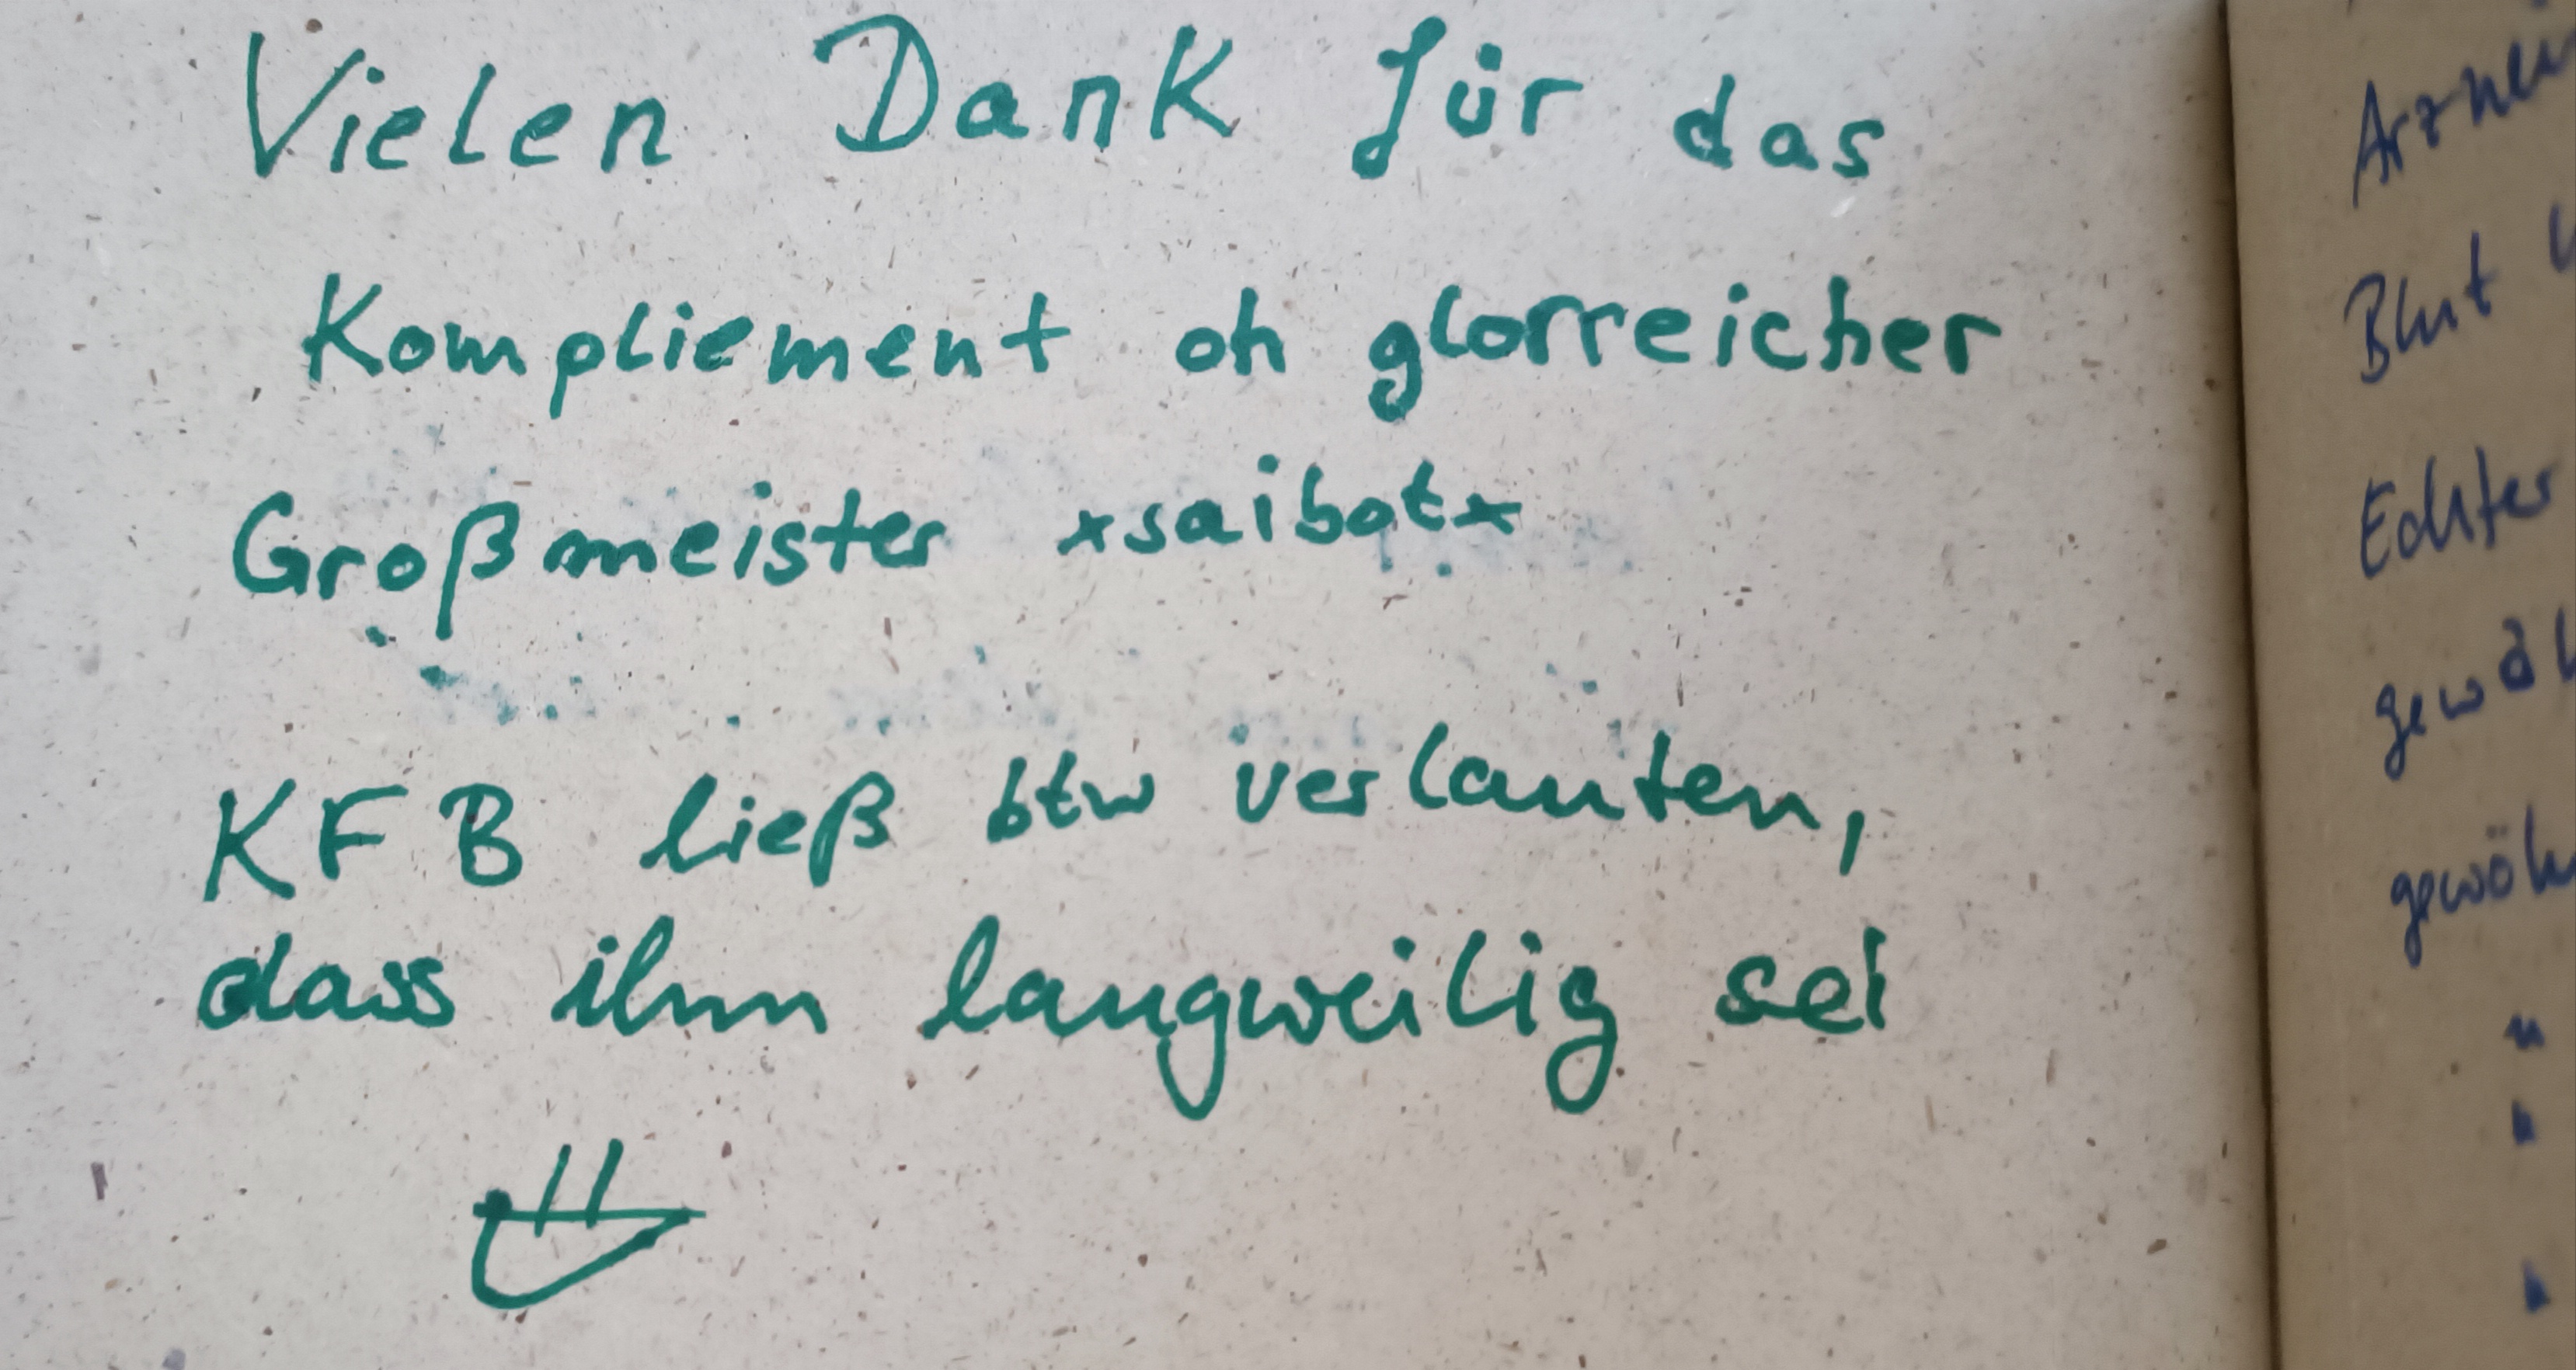 Vielen Dank für das
Kompliement oh glorreicher
Großmeister *saibot*
KFB ließ btw verlauten,
dass ihm langweilig sei
Blut
Echter